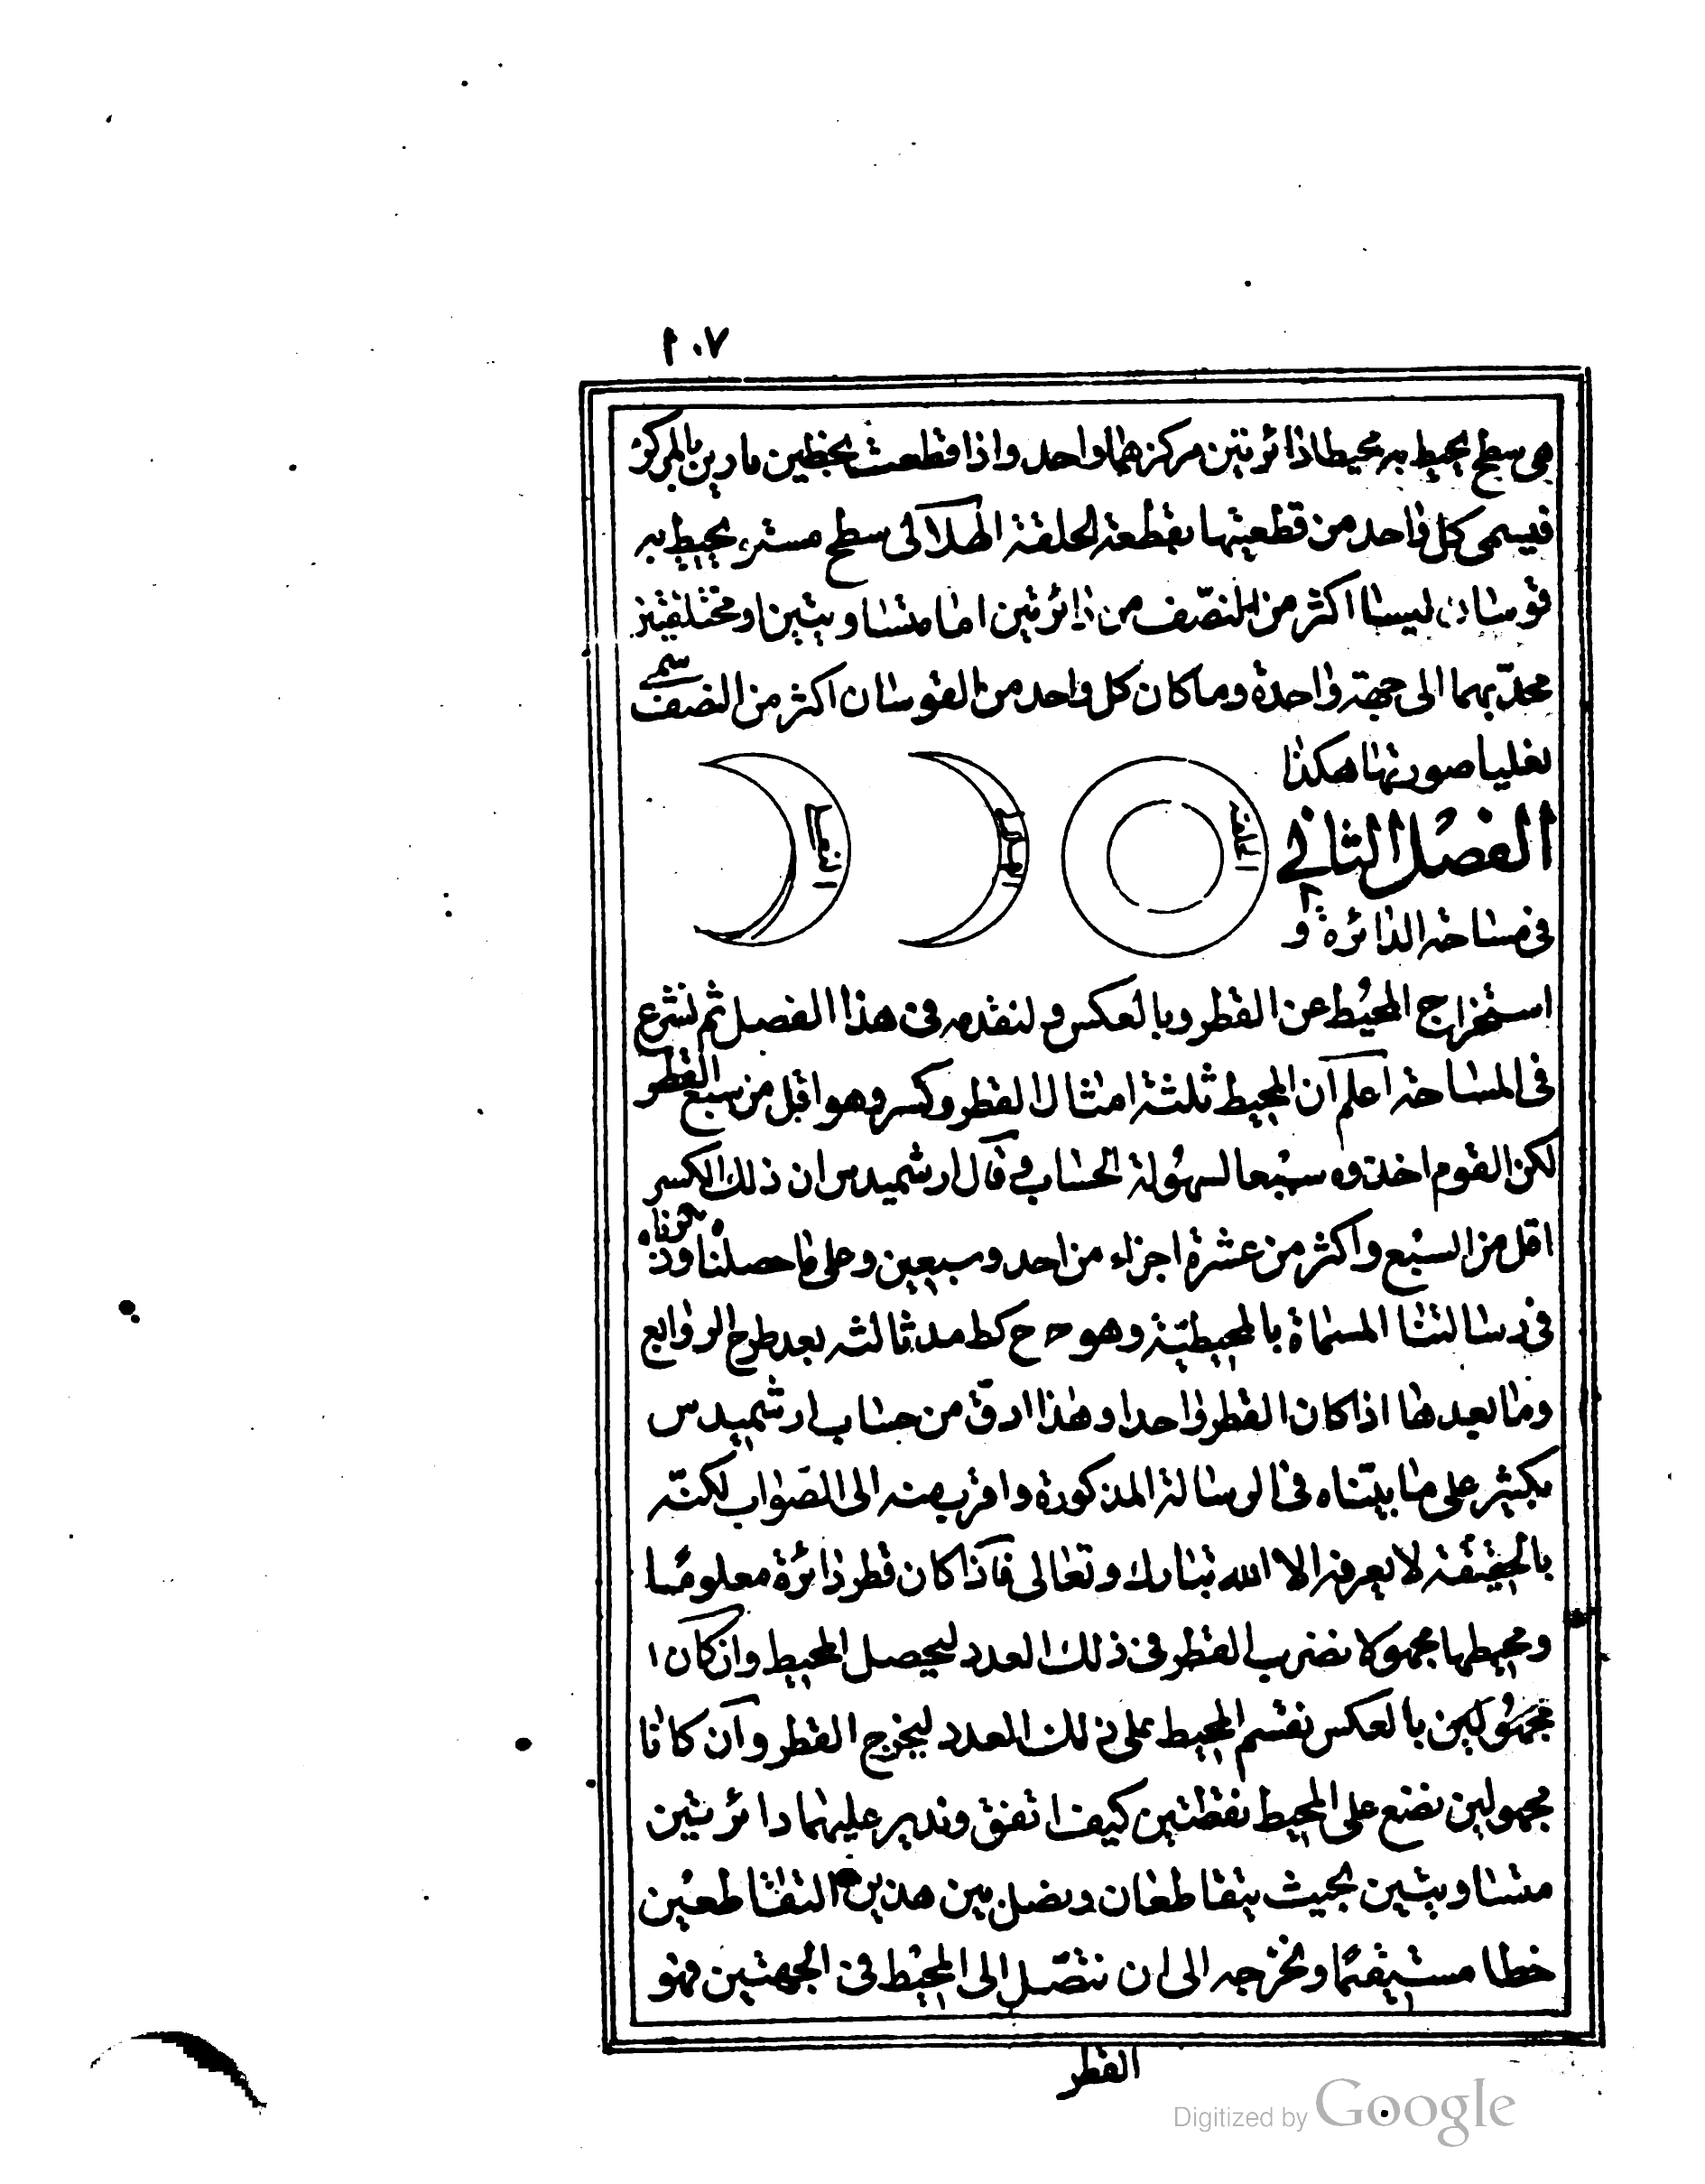 ١٠٧
هى سطح يحيط به محيطا دائرتين مركزهما واحد واذا قطعت بخطين مارين بالمركز
فيسمى كل واحد من قطعيتها بقطعة الحلقة الهلالى سطح مستو يحيط به
قوسان ليسا اكثر من النصف من دائرتين اما متساويتين او مختلفتين
محدبهما الى جهة واحدة وما كان كل واحد من القوسان اكثر من النصف سمى
نعليا صورتها هكذا
الحلقة
الهلالى
النعلى
الفصل الثانى
فى مساحة الدائرة و
استخراج المحيط عن القطر وبالعكس ولنقدمه فى هذا الفصل ثم نشرع
فى المساحة اعلم ان المحيط ثلثة امثال القطر وكسر وهو اقل من سبع القطر
لكن القوم اخذوه سبعا لسهولة الحساب وقال ارشميدس ان ذلك الكسر
اقل من السبع واكثر من عشرة اجزاء من احد وسبعين وعلى ما حصلنا وذكرناه
فى رسالتنا المسماة بالمحيطية وهو ح ح كط مد ثالثه بعد طرح الروابع
وما بعدها اذا كان القطر واحدا وهذا ادق من حساب ارشميدس
بكثير على ما بيناه فى الرسالة المذكورة واقرب منه الى الصواب لكنه
بالحقيقة لا يعرفه الا الله تبارك وتعالى فاذا كان قطر دائرة معلوما
ومحيطها مجهولا نضرب القطر فى ذلك العدد ليحصل المحيط وان كان ا
مجهولين بالعكس نقسم المحيط على ذلك العدد ليخرج القطر وان كانا
مجهولين نضع على المحيط نقطتين كيف اتفق وندير عليهما دائرتين
متساويتين بحيث يتقاطعان ونصل بين هذين التقاطعين
خطا مستقيما ونخرجه الى ان يتصل الى المحيط فى الجهتين فهو
القطر
Digitized by Google